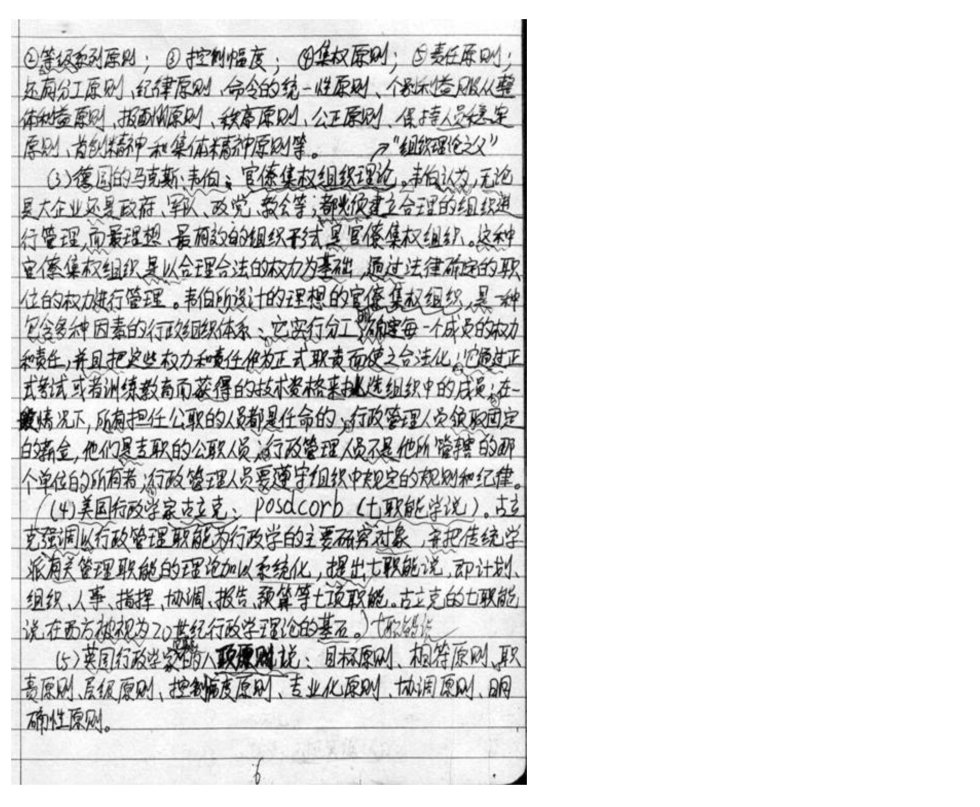 ②等级系列原则；③控制幅度；④集权原则；⑤责任原则；
还有分工原则、纪律原则、命令的统一性原则、个别利益服从整
体利益原则、报酬原则、秩序原则、公正原则、保持人员稳定
原则、首创精神和集体精神原则等。 "组织理论之父"
(3)德国的马克斯·韦伯：官僚集权组织理论。韦伯认为，无论
是大企业还是政府、军队、政党、教会等，都必须建立合理的组织进
行管理，而最理想、最有效的组织形式是官僚集权组织。这种
官僚集权组织是以合理合法的权力为基础，通过法律确定的职
位的权力进行管理。韦伯所设计的理想的官僚集权组织，是一种
包含多种因素的行政组织体系：它实行分工，明确定每一个成员的权力
和责任，并且把这些权力和责任作为正式职责而使之合法化；它通过正
式考试或者训练教育而获得的技术资格来挑选组织中的成员；在一
般情况下，所有担任公职的人员都是任命的；行政管理人员领取固定
的薪金，他们是专职的公职人员；行政管理人员不是他所管辖的那
个单位的所有者；行政管理人员要遵守组织中规定的规则和纪律。
(4)美国行政学家古立克：posdcorb（七职能学说）。古立
克强调以行政管理职能为行政学的主要研究对象，并把传统学
派有关管理职能的理论加以系统化，提出七职能说，即计划、
组织、人事、指挥、协调、报告、预算等七项职能。古立克的七职能
说在西方被视为20世纪行政学理论的基石。)七职能说
(5)英国行政学家 的八职原则说：目标原则、相符原则、职
责原则、层级原则、控制幅度原则、专业化原则、协调原则、明
确性原则。
6